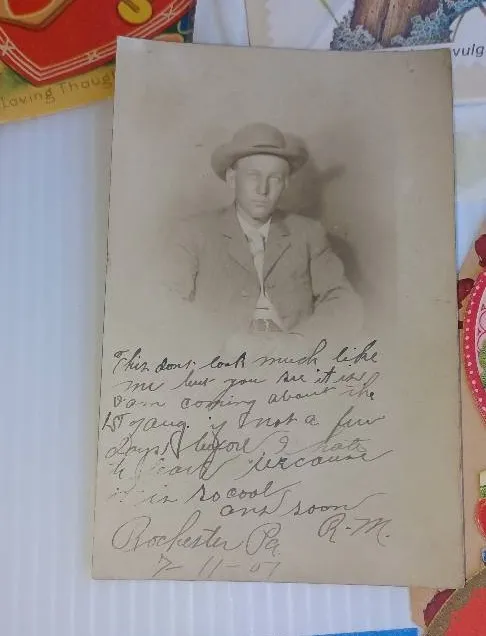 Loving Though
vulg
This dont look much like
me but you see it is
I am coming about the
1st of aug if not a few
days before I hate
to leave because
it is so cool
ans soon
Rochester Pa R-M.
7-11-07